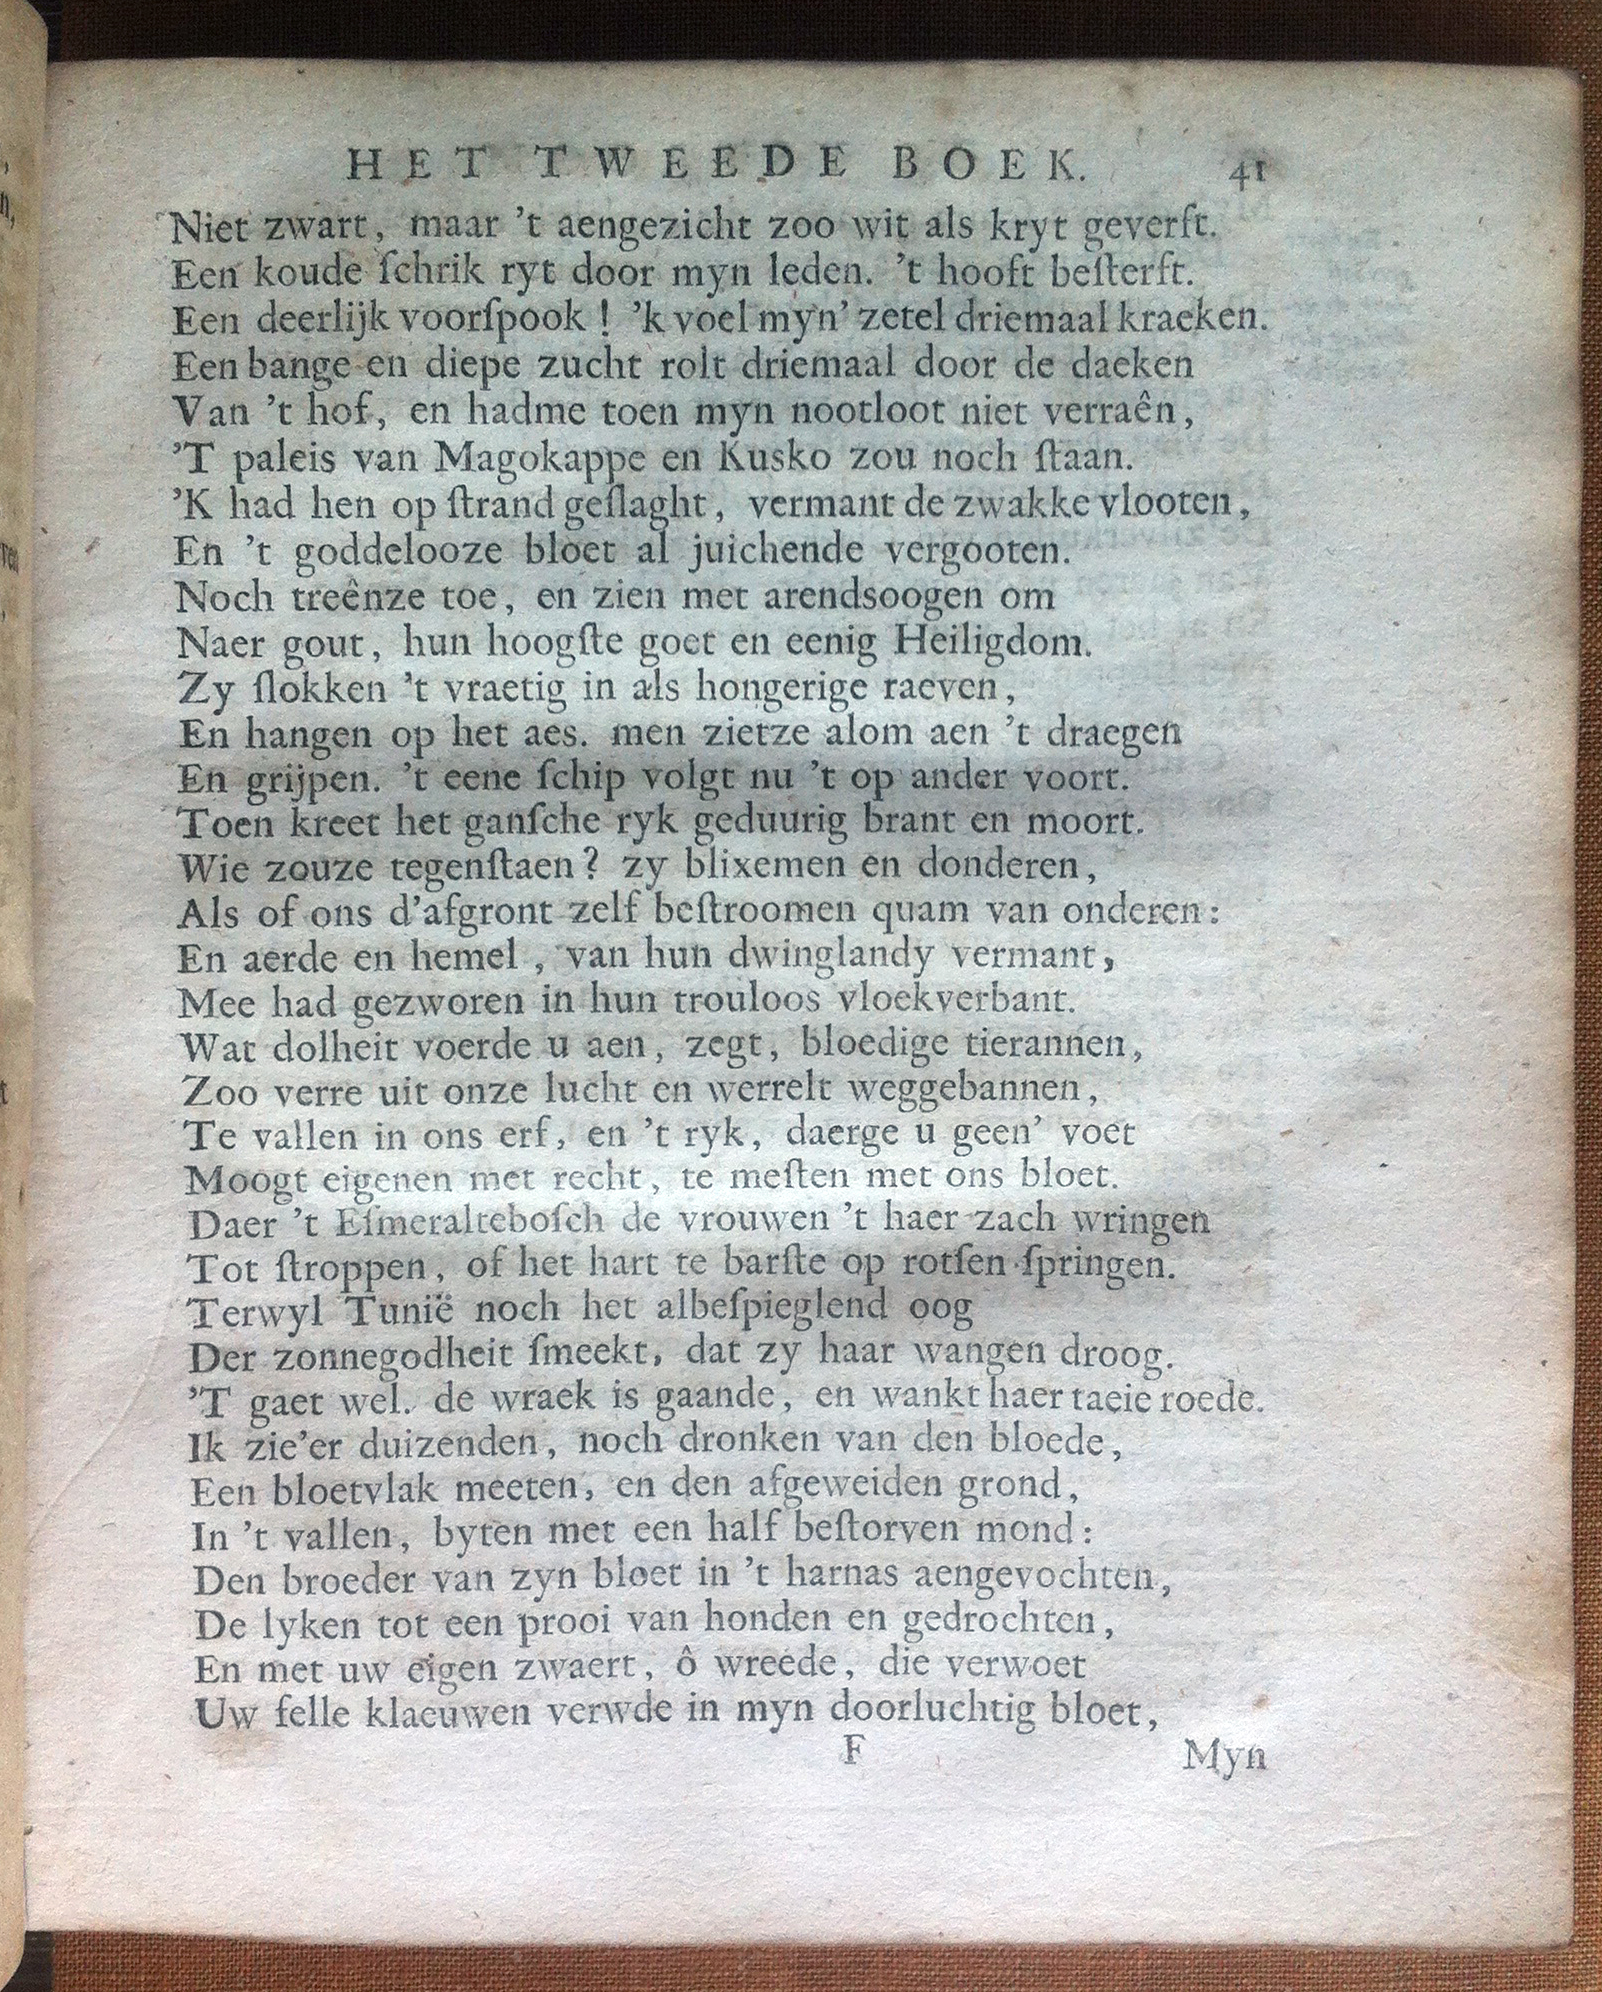 HET TWEEDE BOEK. 41
Niet zwart, maar 't aengezicht zoo wit als kryt geverft.
Een koude ſchrik ryt door myn leden. 't hooft beſterft.
Een deerlijk voorſpook! 'k voel myn' zetel driemaal kraeken.
Een bange en diepe zucht rolt driemaal door de daeken
Van 't hof, en hadme toen myn nootloot niet verraên,
'T paleis van Magokappe en Kusko zou noch ſtaan.
'K had hen op ſtrand geſlaght, vermant de zwakke vlooten,
En 't goddelooze bloet al juichende vergooten.
Noch treênze toe, en zien met arendsoogen om
Naer gout, hun hoogſte goet en eenig Heiligdom.
Zy ſlokken 't vraetig in als hongerige raeven,
En hangen op het aes. men zietze alom aen 't draegen
En grijpen. 't eene ſchip volgt nu 't op ander voort.
Toen kreet het ganſche ryk geduurig brant en moort.
Wie zouze tegenſtaen? zy blixemen en donderen,
Als of ons d'afgront zelf beſtroomen quam van onderen:
En aerde en hemel, van hun dwinglandy vermant,
Mee had gezworen in hun trouloos vloekverbant.
Wat dolheit voerde u aen, zegt, bloedige tierannen,
Zoo verre uit onze lucht en werrelt weggebannen,
Te vallen in ons erf, en 't ryk, daerge u geen' voet
Moogt eigenen met recht, te meſten met ons bloet.
Daer 't Eſmeralteboſch de vrouwen 't haer zach wringen
Tot ſtroppen, of het hart te barſte op rotſen ſpringen.
Terwyl Tunië noch het albeſpieglend oog
Der zonnegodheit ſmeekt, dat zy haar wangen droog.
'T gaet wel. de wraek is gaande, en wankt haer taeie roede.
Ik zie'er duizenden, noch dronken van den bloede,
Een bloetvlak meeten, en den afgeweiden grond,
In 't vallen, byten met een half beſtorven mond:
Den broeder van zyn bloet in 't harnas aengevochten,
De lyken tot een prooi van honden en gedrochten,
En met uw eigen zwaert, ô wreede, die verwoet
Uw felle klaeuwen verwde in myn doorluchtig bloet,
F Myn